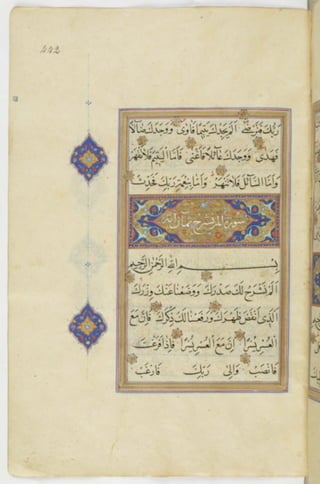 442
رَبُّكَ فَتَرْضَىٰ اَلَمْ يَجِدْكَ يَتِيمًا فَاٰوٰى وَوَجَدَكَ ضَالًّا
فَهَدٰى وَوَجَدَكَ عَائِلًا فَاَغْنٰى فَاَمَّا الْيَتِيمَ فَلَا تَقْهَرْ
وَاَمَّا السَّائِلَ فَلَا تَنْهَرْ وَاَمَّا بِنِعْمَةِ رَبِّكَ فَحَدِّثْ
سورة الم نشرح ثمان اية
بِسْمِ اللّٰهِ الرَّحْمٰنِ الرَّحِيمِ
اَلَمْ نَشْرَحْ لَكَ صَدْرَكَ وَوَضَعْنَا عَنْكَ وِزْرَكَ
الَّذِى اَنْقَضَ ظَهْرَكَ وَرَفَعْنَا لَكَ ذِكْرَكَ فَاِنَّ مَعَ
الْعُسْرِ يُسْرًا اِنَّ مَعَ الْعُسْرِ يُسْرًا فَاِذَا فَرَغْتَ
فَانْصَبْ وَاِلٰى رَبِّكَ فَارْغَبْ